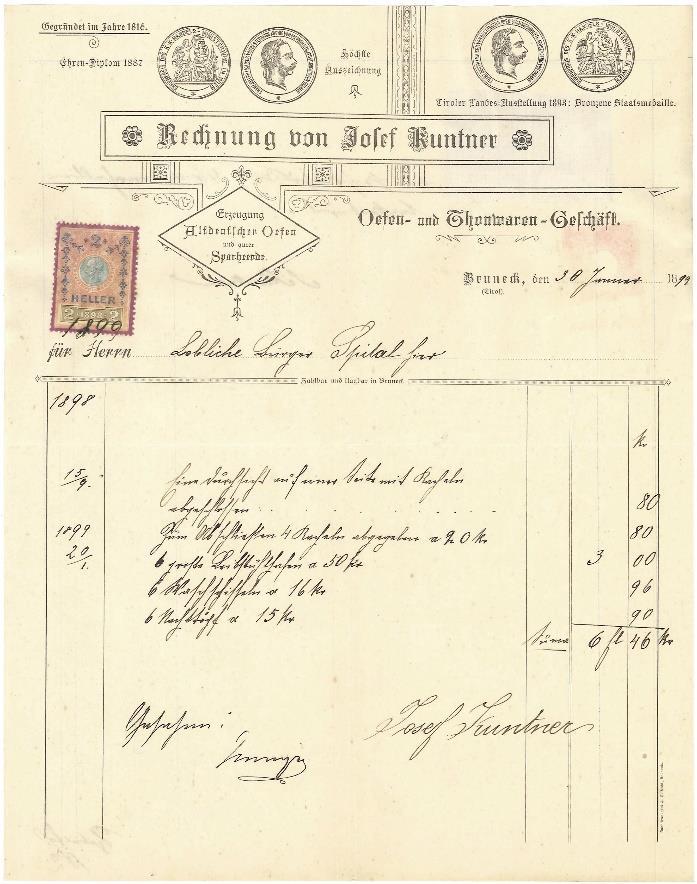 Gegründet im Jahre 1816.
Ehren-Diplom 1887
Höchste
Auszeichnung
Tiroler Landes-Ausstellung 1893: Bronzene Staatsmedaille.
Rechnung von Josef Kuntner
Erzeugung
Altdeutscher Oefen
und guter
Sparherde.
Oefen- und Thonwaren-Geschäft.
Bruneck, den 30 Jänner 1899
(Tirol).
2
HELLER
2 1898 2
1899
für Herrn Lobliche Bürger Spital hier
Zahlbar und klagbar in Bruneck
1898
kr
15/9. Eine Durchsicht auf einer Seite mit Kacheln
abgeschlossen . . . . . . 80
1899 Zum Abschließen 4 Kacheln abgegeben a 20 kr 80
20/1. 6 große Leibstuhlhafen a 50 kr 3 00
6 Waschschisseln a 16 kr 96
6 Nachttöpf a 15 kr 90
Suma 6 fl 46 kr
Gesehen:
Josef Kuntner